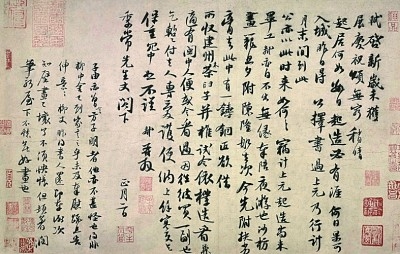 軾啓新歲未獲
展慶祝頌無窮稍晴
起居何如數日起造必有涯何日果可
入城昨日得公擇書過上元乃行計
月末間到此
公亦以此時來如何竊計上元起造尚未
畢工軾亦自不出無緣奉陪夜遊也沙枋
畫籠旦夕附陳隆船去次今先附扶劣
膏去此中有一鑄銅匠欲借
所收建州木茶臼子并椎試令依樣造看兼
適有閩中人便或令看過因往彼買一副也
乞暫付去人專愛護便納上餘寒更乞
保重冗中恕不謹軾再拜
季常先生丈閣下正月二日
子由亦曾言方子明者他亦不甚怪也得非
柳中舍已到家言之乎未及奉慰疏且告
伸意伸意柳丈昨得書人還即奉謝次
知壁畫已壞了不須怏怏但頓著潤
筆新屋下不愁無好畫也